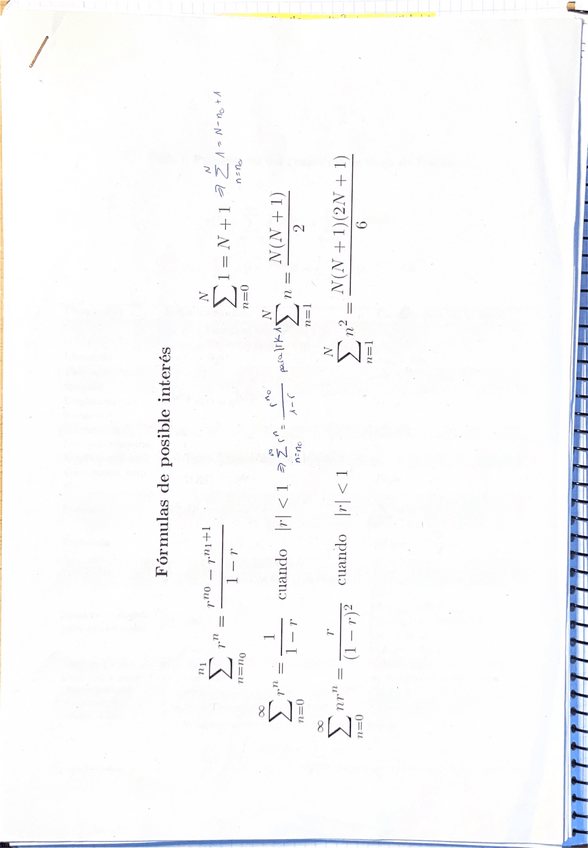 Fórmulas de posible interés
∑_{n=n₀}^{n₁} rⁿ = (r^{n₀} − r^{n₁+1}) / (1 − r)
∑_{n=0}^{N} 1 = N + 1 ⇒ ∑_{n=n₀}^{N} 1 = N − n₀ + 1
∑_{n=0}^{∞} rⁿ = 1 / (1 − r) cuando |r| < 1 ⇒ ∑_{n=n₀}^{∞} rⁿ = r^{n₀} / (1 − r) para |r| < 1
∑_{n=1}^{N} n = N(N + 1) / 2
∑_{n=0}^{∞} nrⁿ = r / (1 − r)² cuando |r| < 1
∑_{n=1}^{N} n² = N(N + 1)(2N + 1) / 6